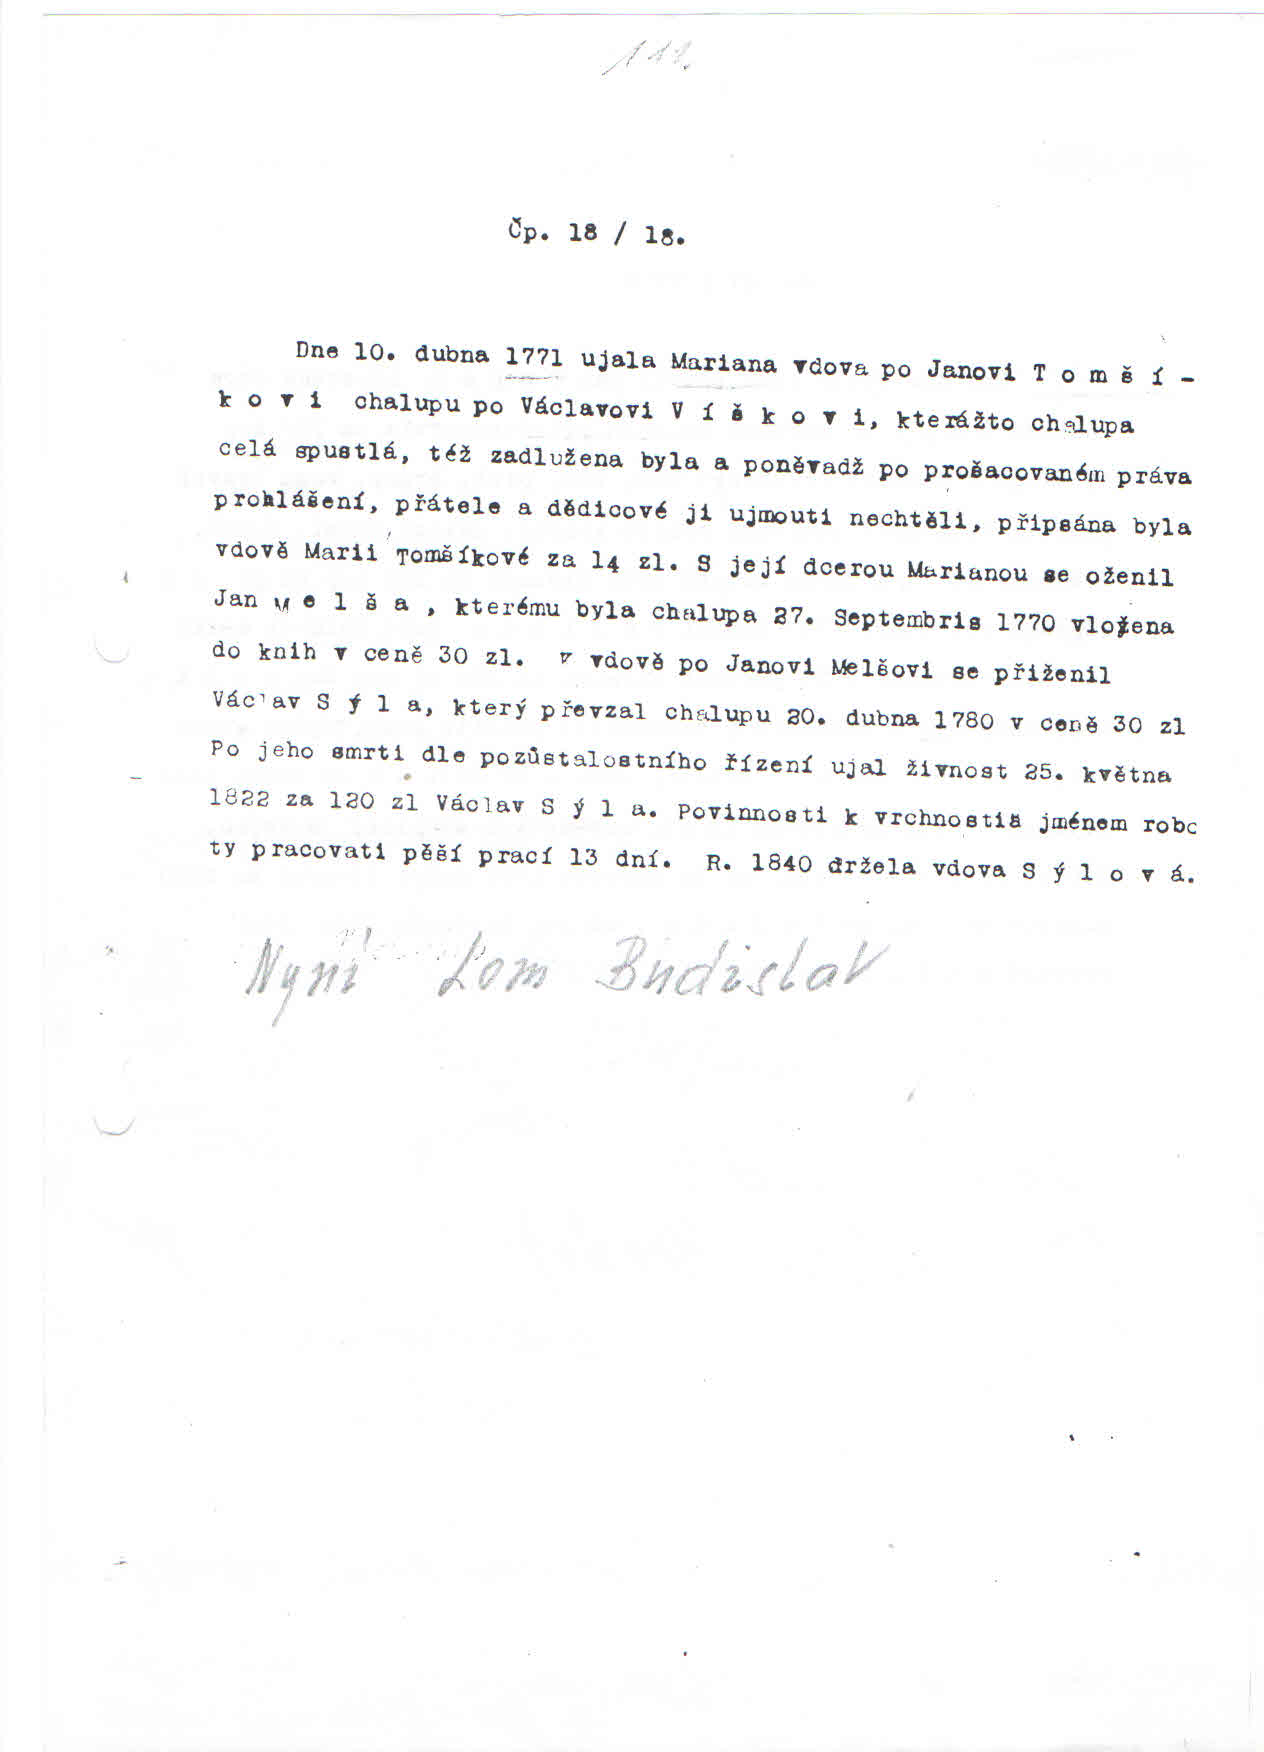 112
Čp. 18 / 18.
Dne 10. dubna 1771 ujala Mariana vdova po Janovi T o m š í -
k o v i chalupu po Václavovi V í š k o v i, kterážto chalupa
celá spustlá, též zadlužena byla a poněvadž po prošacovaném práva
prohlášení, přátele a dědicové ji ujmouti nechtěli, připsána byla
vdově Marii Tomšíkové za 14 zl. S její dcerou Marianou se oženil
Jan M e l š a , kterému byla chalupa 27. Septembris 1770 vložena
do knih v ceně 30 zl. K vdově po Janovi Melšovi se přiženil
Václav S ý l a, který převzal chalupu 20. dubna 1780 v ceně 30 zl
Po jeho smrti dle pozůstalostního řízení ujal živnost 25. května
1822 za 120 zl Václav S ý l a. Povinnosti k vrchnosti jménem robo
ty pracovati pěší prací 13 dní. R. 1840 držela vdova S ý l o v á.
Nyní Lom Budislav